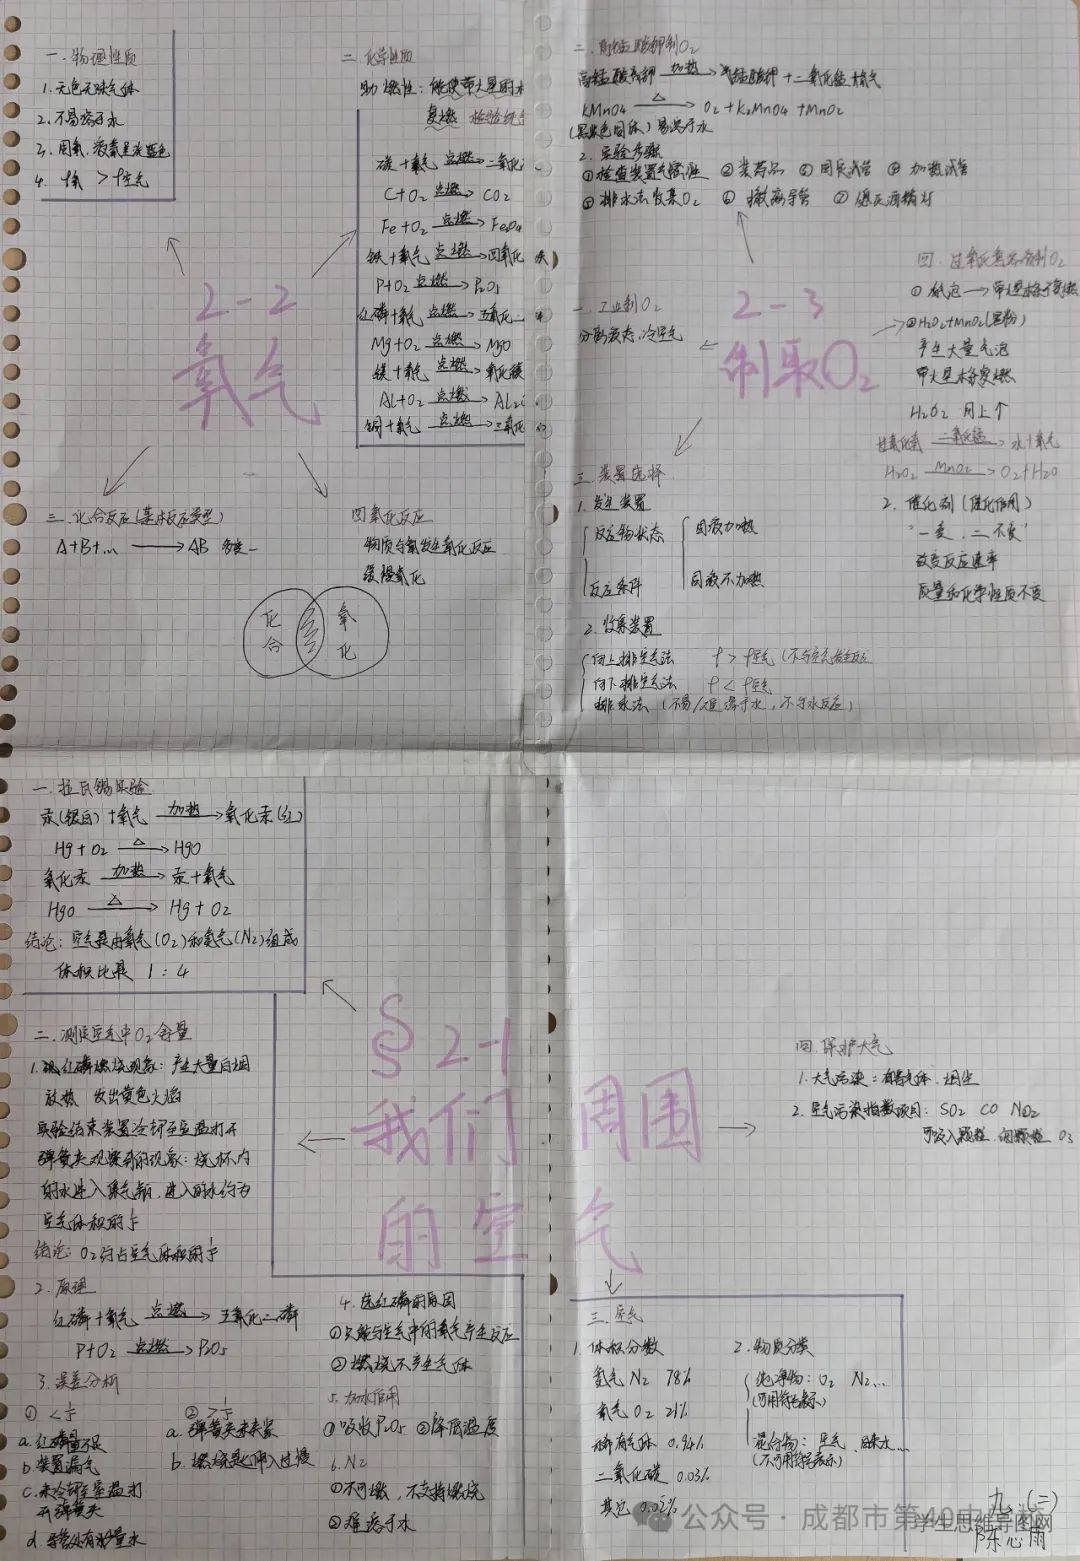 一.物理性质
1.无色无味气体
2.不易溶于水
3.固氧、液氧呈淡蓝色
4. ρ氧 > ρ空气
二.化学性质
助燃性:能使带火星的木
复燃 检验
碳+氧气 点燃→ 二氧化
C+O2 点燃→ CO2
Fe+O2 点燃→ Fe3O4
铁+氧气 点燃→ 四氧化
P+O2 点燃→ P2O5
红磷+氧气 点燃→ 五氧化二
Mg+O2 点燃→ MgO
镁+氧气 点燃→ 氧化镁
Al+O2 点燃→ Al2
铝+氧气 点燃→ 三氧化
2-2
氧气
三.化合反应(基本反应类型)
A+B+... → AB 多变一
四氧化反应
物质与氧发生氧化反应
缓慢氧化
化合
氧化
二.高锰酸钾制O2
高锰酸钾 加热→ 锰酸钾+二氧化锰+氧气
KMnO4 △→ O2+K2MnO4+MnO2
(黑紫色固体)易溶于水
2.实验步骤
①检查装置气密性 ②装药品 ③固定试管 ④加热试管
⑤排水法收集O2 ⑥撤离导管 ⑦熄灭酒精灯
四.过氧化氢溶液制O2
②H2O2+MnO2(黑粉)
产生大量气泡
带火星木条复燃
H2O2 同上↑
过氧化氢 二氧化锰→ 水+氧气
H2O2 MnO2→ O2+H2O
2.催化剂(催化作用)
"一变、二不变"
改变反应速率
质量和化学性质不变
一.工业制O2
分离液态冷空气
2-3
制取O2
三.装置选择
1.发生装置
反应物状态
固液加热
反应条件
固液不加热
2.收集装置
向上排空气法 ρ>ρ空气(不与空气发生反应
向下排空气法 ρ<ρ空气
排水法(不易/难溶于水,不与水反应)
一.拉瓦锡实验
汞(银白)+氧气 加热→ 氧化汞(红)
Hg+O2 △→ HgO
氧化汞 加热→ 汞+氧气
HgO △→ Hg+O2
结论:空气是由氧气(O2)和氮气(N2)组成
体积比是 1:4
二.测定空气中O2含量
1.现红磷燃烧现象:产生大量白烟
放热 发出黄色火焰
实验结束装置冷却至室温打开
弹簧夹观察到的现象:烧杯内
的水进入集气瓶,进入的水约为
空气体积的1/5
结论:O2约占空气体积的1/5
2.原理
红磷+氧气 点燃→ 五氧化二磷
P+O2 点燃→ P2O5
3.误差分析
①<1/5
a.红磷量不足
b.装置漏气
c.未冷却至室温打
开弹簧夹
d.导管处有水
②>1/5
a.弹簧夹未夹紧
b.燃烧匙伸入过慢
4.选红磷的原因
①只能与空气中的氧气产生反应
②燃烧不产生气体
5.加水作用
①吸收P2O5 ②降低温度
6.N2
①不可燃,不支持燃烧
②难溶于水
§2-1
我们周围
的空气
四.保护大气
1.大气污染:有害气体、烟尘
2.空气污染指数项目:SO2 CO NO2
可吸入颗粒、细颗粒 O3
三.空气
1.体积分数
氮气 N2 78%
氧气 O2 21%
稀有气体 0.94%
二氧化碳 0.03%
其它 0.03%
2.物质分类
纯净物:O2 N2...
(可用符号表示)
混合物:空气
(不可用符号表示)
公众号·成都市第49中学校
学生思维导图网
九.(三)
陈心雨